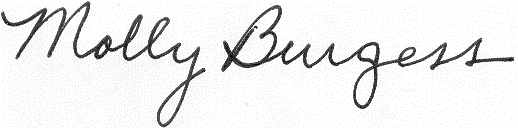 Molly Burgess